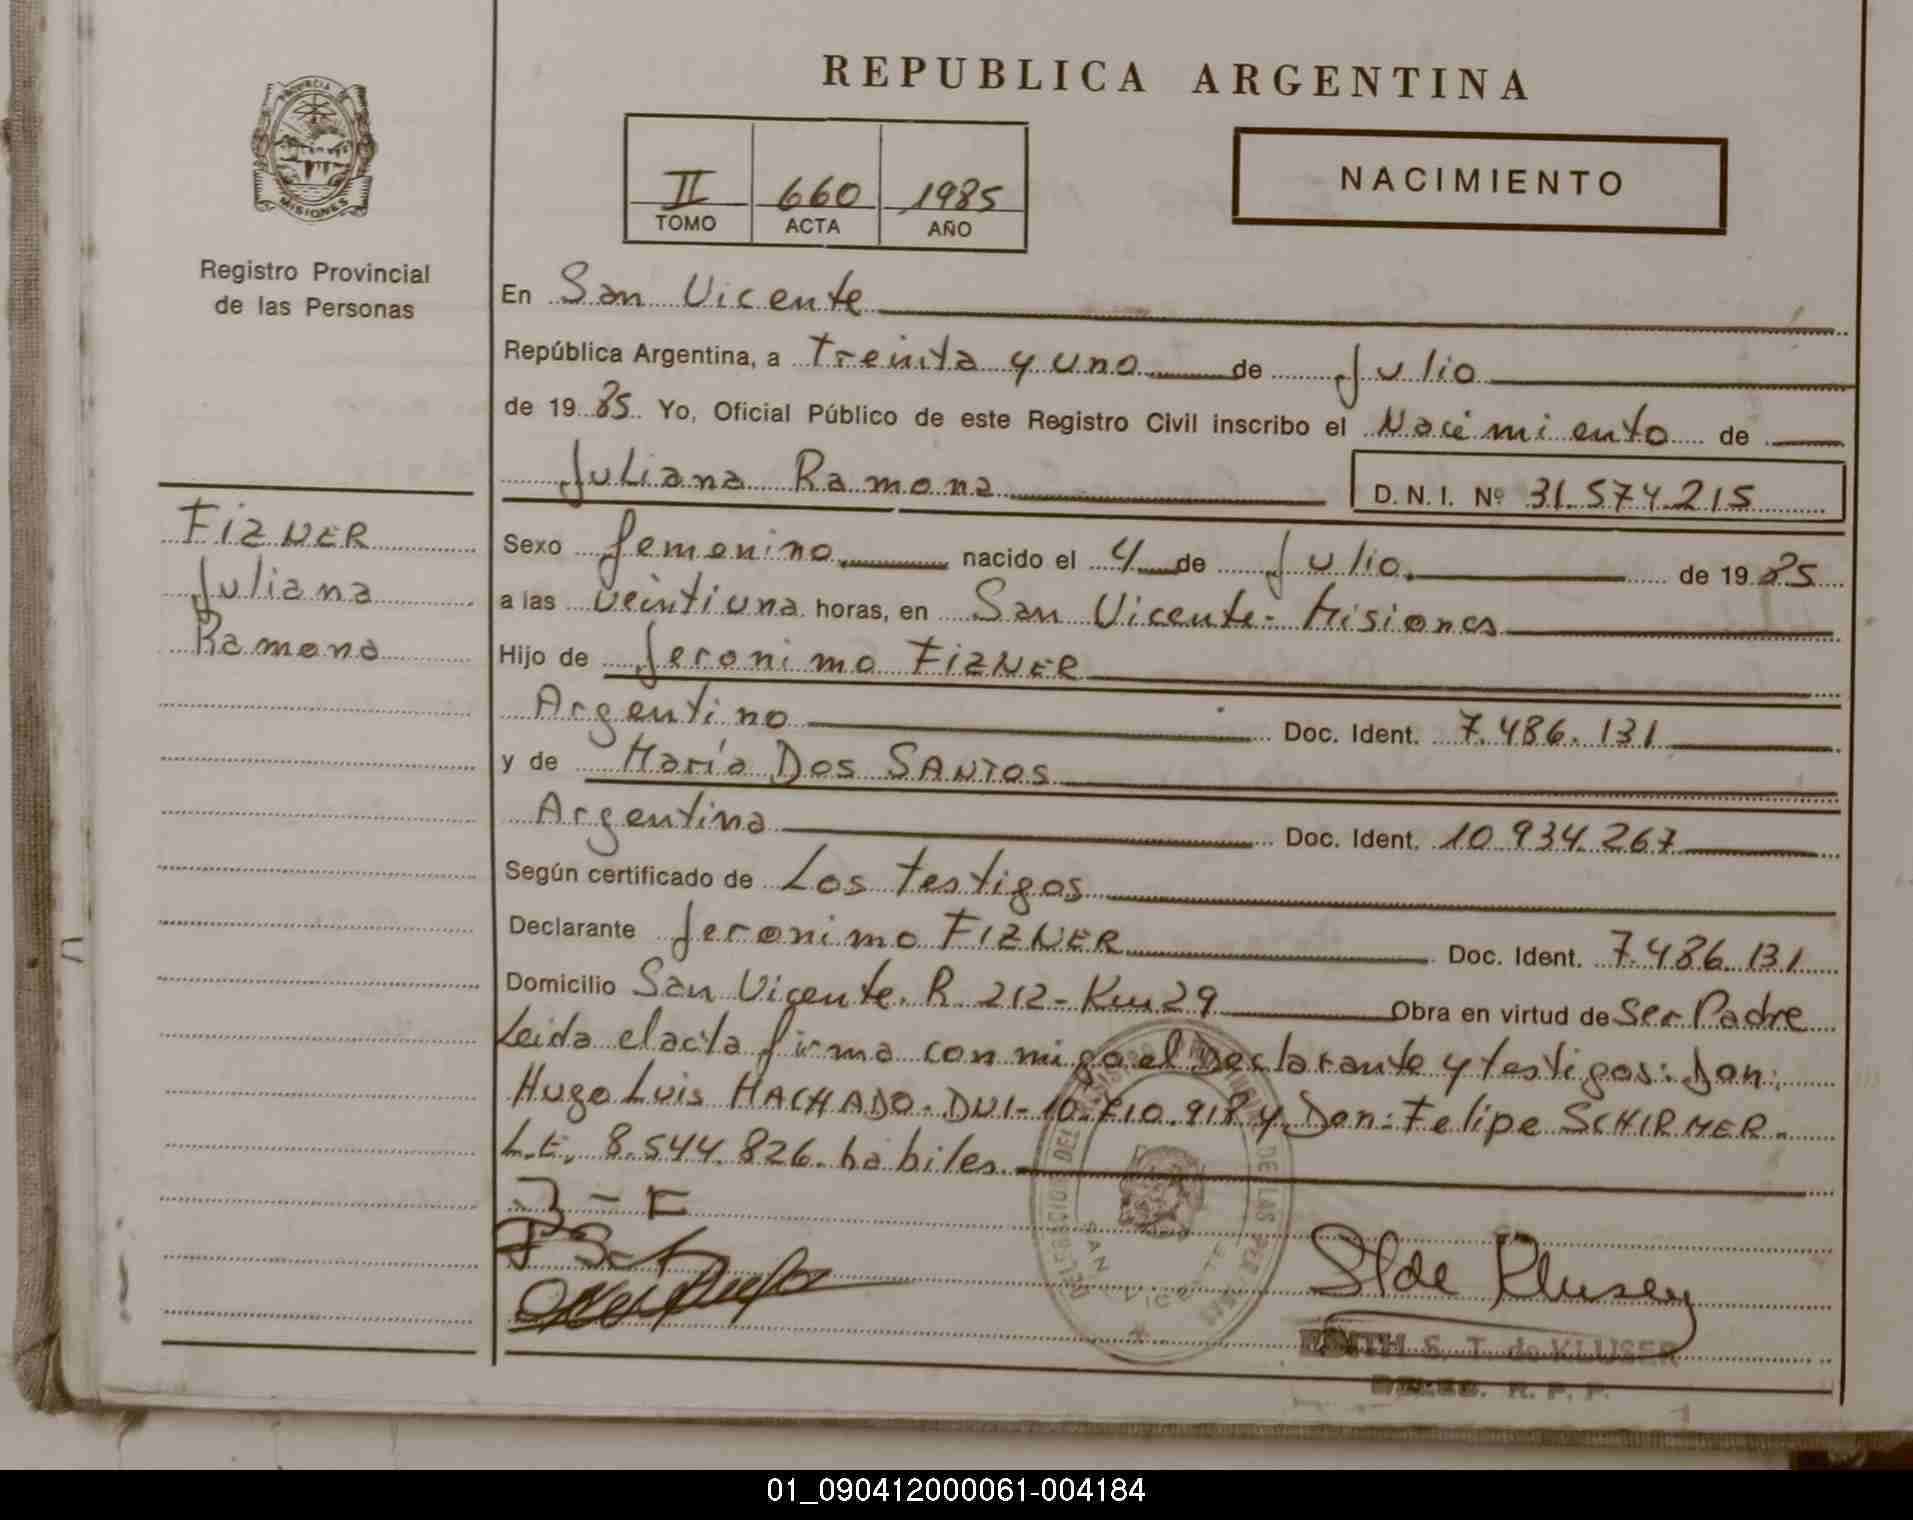 REPUBLICA ARGENTINA
PROVINCIA DE
MISIONES
Registro Provincial
de las Personas
II 660 1985
TOMO ACTA AÑO
NACIMIENTO
En San Vicente
República Argentina, a treinta y uno de Julio
de 19 85 Yo, Oficial Público de este Registro Civil inscribo el Nacimiento de
Juliana Ramona D. N. I. Nº 31.574.215
FIZNER
Juliana
Ramona
Sexo femenino nacido el 4 de Julio de 19 85
a las veintiuna horas, en San Vicente - Misiones
Hijo de Jeronimo FIZNER
Argentino Doc. Ident. 7.486.131
y de María DOS SANTOS
Argentina Doc. Ident. 10.934.267
Según certificado de Los testigos
Declarante Jeronimo FIZNER Doc. Ident. 7.486.131
Domicilio San Vicente. R. 212 - Km 29 Obra en virtud de Ser Padre
Leida el acta firma con migo el Declarante y testigos: Don:
Hugo Luis MACHADO. DNI - 10.710.918 y Don: Felipe SCHIRMER.
L.E. 8.544.826. habiles
J - F
SAN VICENTE
S T de Kluser
EDITH S. T. de KLUSER
R. P. P.
01_090412000061-004184